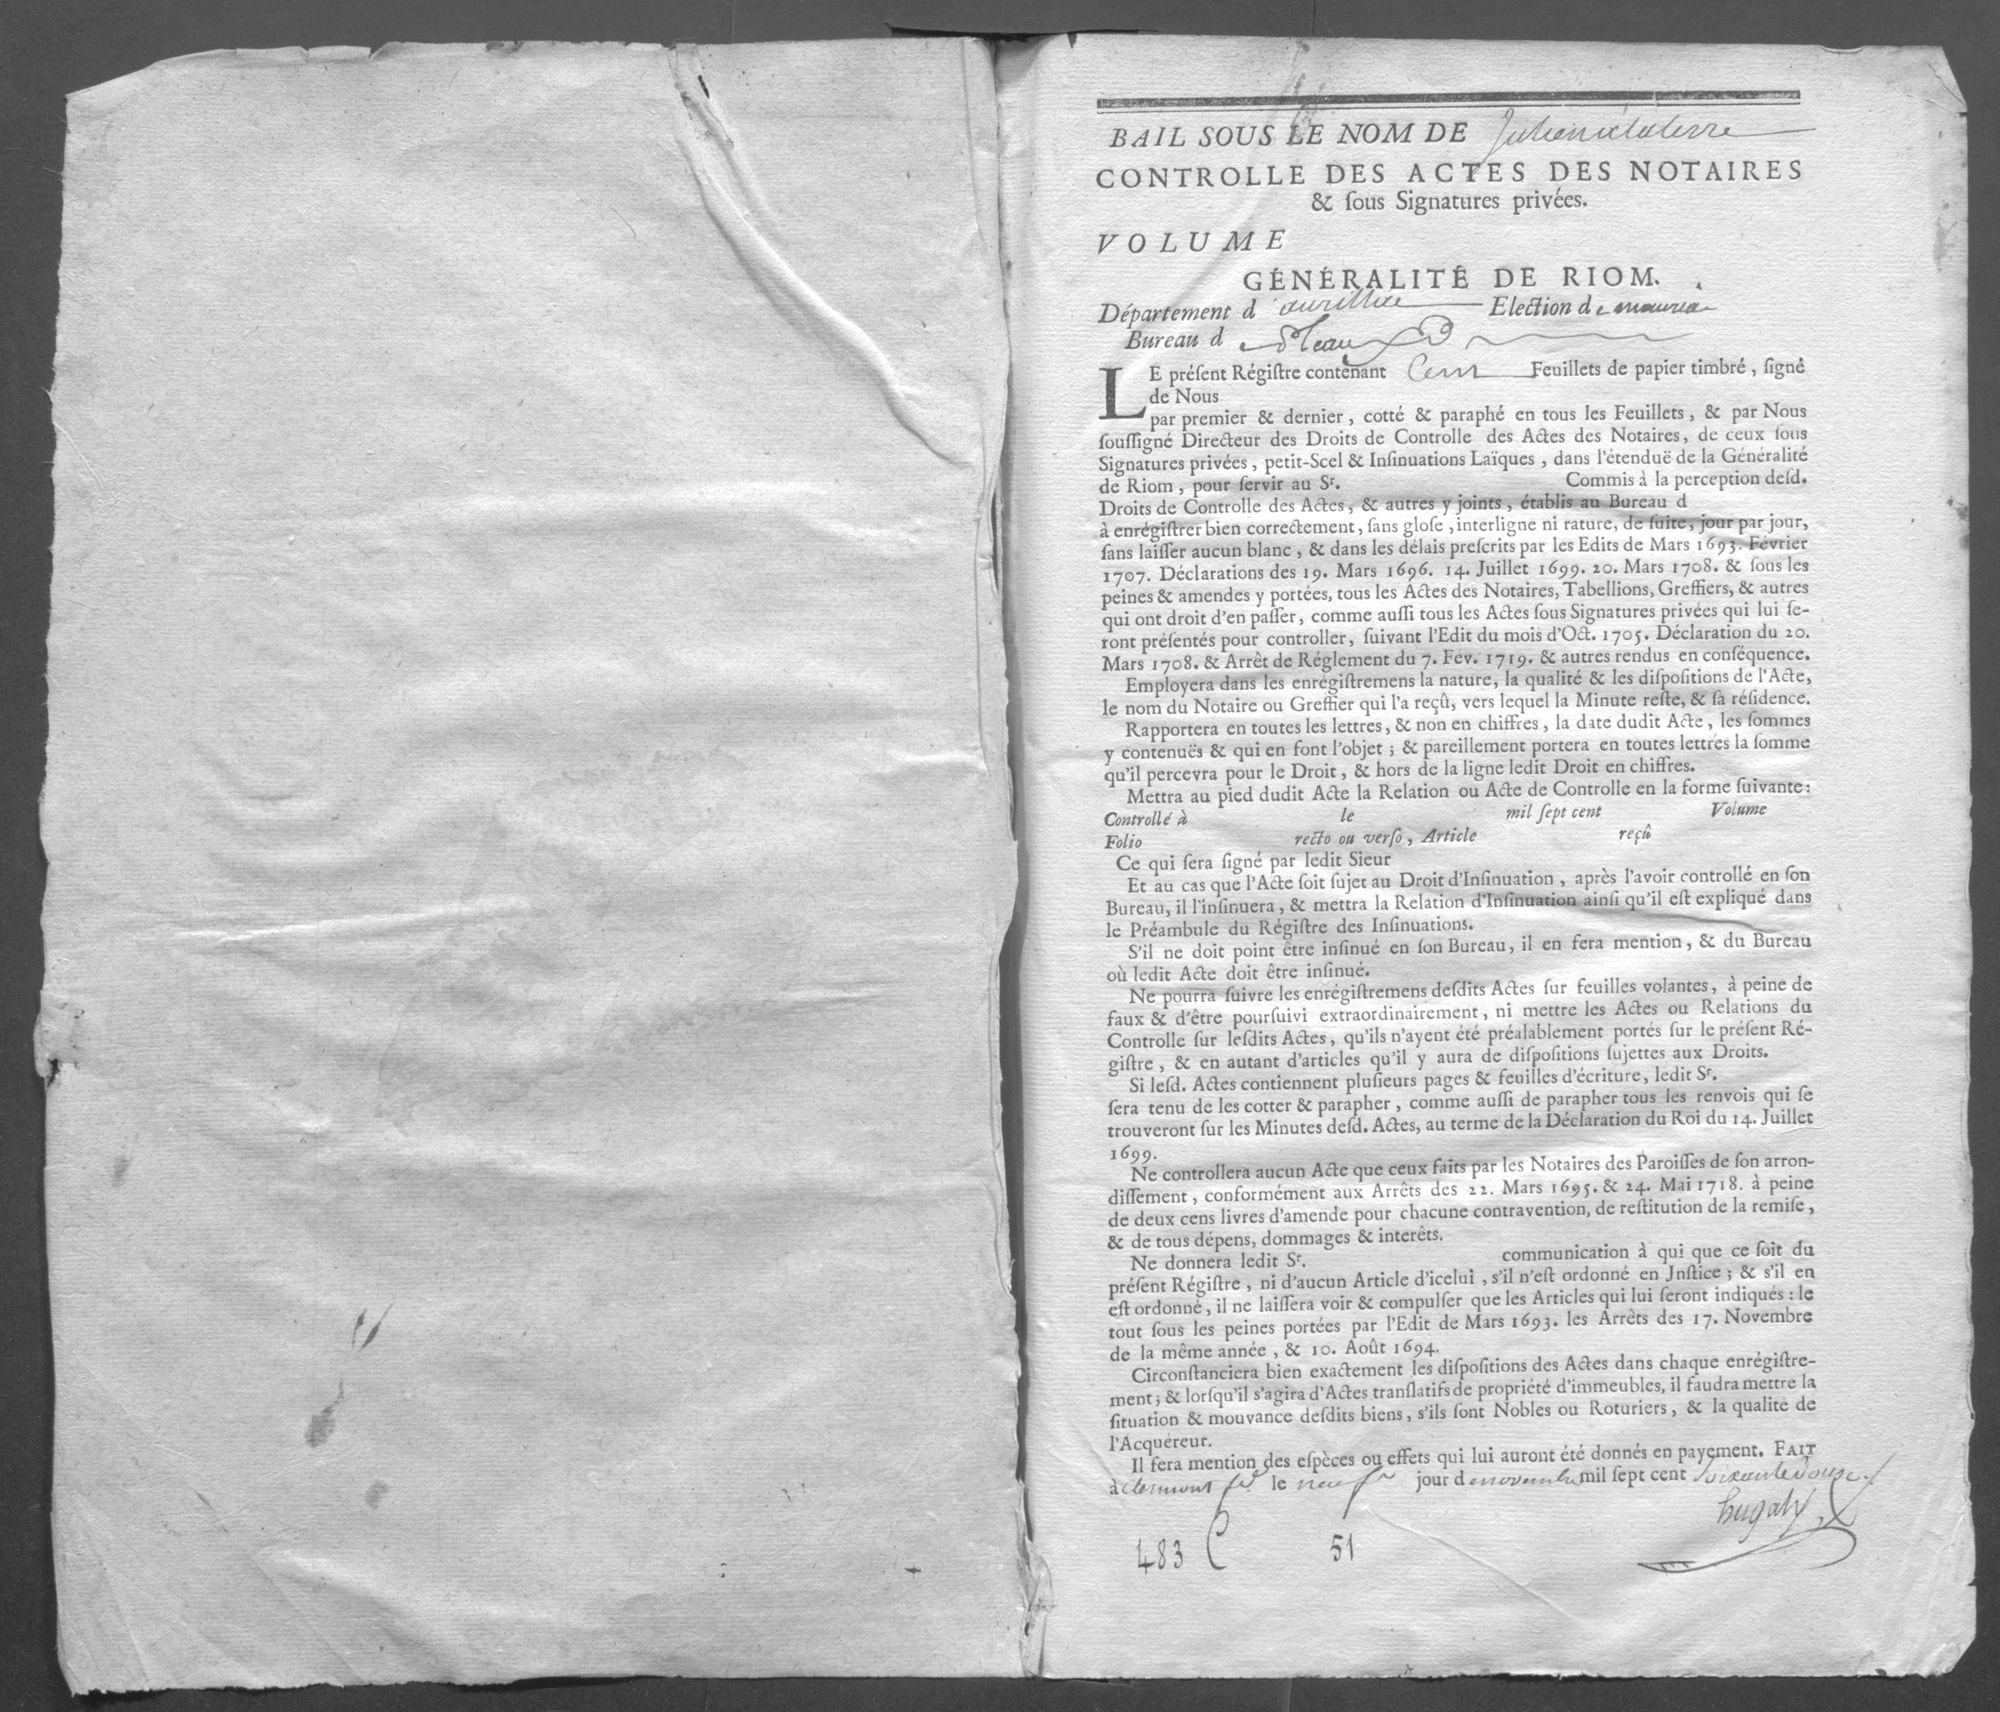 BAIL SOUS LE NOM DE Julien alaterre
CONTROLLE DES ACTES DES NOTAIRES
& ſous Signatures privées.
VOLUME
GÉNÉRALITÉ DE RIOM.
Département d'aurillac Election de mauriac
Bureau de pleaux
LE préſent Régiſtre contenant Cent Feuillets de papier timbré, ſigné
de Nous
par premier & dernier, cotté & paraphé en tous les Feuillets, & par Nous
ſouſſigné Directeur des Droits de Controlle des Actes des Notaires, de ceux ſous
Signatures privées, petit-Scel & Inſinuations Laïques, dans l'étenduë de la Généralité
de Riom, pour ſervir au Sr. Commis à la perception deſd.
Droits de Controlle des Actes, & autres y joints, établis au Bureau d
à enrégiſtrer bien correctement, ſans gloſe, interligne ni rature, de ſuite, jour par jour,
ſans laiſſer aucun blanc, & dans les délais preſcrits par les Edits de Mars 1693. Février
1707. Déclarations des 19. Mars 1696. 14. Juillet 1699. 20. Mars 1708. & ſous les
peines & amendes y portées, tous les Actes des Notaires, Tabellions, Greffiers, & autres
qui ont droit d'en paſſer, comme auſſi tous les Actes ſous Signatures privées qui lui ſe-
ront préſentés pour controller, ſuivant l'Edit du mois d'Oct. 1705. Déclaration du 20.
Mars 1708. & Arrêt de Réglement du 7. Fév. 1719. & autres rendus en conſéquence.
Employera dans les enrégiſtremens la nature, la qualité & les diſpoſitions de l'Acte,
le nom du Notaire ou Greffier qui l'a reçû, vers lequel la Minute reſte, & ſa réſidence.
Rapportera en toutes les lettres, & non en chiffres, la date dudit Acte, les ſommes
y contenuës & qui en font l'objet; & pareillement portera en toutes lettres la ſomme
qu'il percevra pour le Droit, & hors de la ligne ledit Droit en chiffres.
Mettra au pied dudit Acte la Relation ou Acte de Controlle en la forme ſuivante:
Controllé à le mil ſept cent Volume
Folio recto ou verſo, Article reçû
Ce qui ſera ſigné par ledit Sieur
Et au cas que l'Acte ſoit ſujet au Droit d'Inſinuation, après l'avoir controllé en ſon
Bureau, il l'inſinuera, & mettra la Relation d'Inſinuation ainſi qu'il eſt expliqué dans
le Préambule du Régiſtre des Inſinuations.
S'il ne doit point être inſinué en ſon Bureau, il en fera mention, & du Bureau
où ledit Acte doit être inſinué.
Ne pourra ſuivre les enrégiſtremens deſdits Actes ſur feuilles volantes, à peine de
faux & d'être pourſuivi extraordinairement, ni mettre les Actes ou Relations du
Controlle ſur leſdits Actes, qu'ils n'ayent été préalablement portés ſur le préſent Ré-
giſtre, & en autant d'articles qu'il y aura de diſpoſitions ſujettes aux Droits.
Si leſd. Actes contiennent pluſieurs pages & feuilles d'écriture, ledit Sr.
ſera tenu de les cotter & parapher, comme auſſi de parapher tous les renvois qui ſe
trouveront ſur les Minutes deſd. Actes, au terme de la Déclaration du Roi du 14. Juillet
1699.
Ne controllera aucun Acte que ceux faits par les Notaires des Paroiſſes de ſon arron-
diſſement, conformément aux Arrêts des 22. Mars 1695. & 24. Mai 1718. à peine
de deux cens livres d'amende pour chacune contravention, de reſtitution de la remiſe,
& de tous dépens, dommages & interêts.
Ne donnera ledit Sr. communication à qui que ce ſoit du
préſent Régiſtre, ni d'aucun Article d'icelui, s'il n'eſt ordonné en Jnſtice; & s'il en
eſt ordonné, il ne laiſſera voir & compulſer que les Articles qui lui ſeront indiqués: le
tout ſous les peines portées par l'Edit de Mars 1693. les Arrêts des 17. Novembre
de la même année, & 10. Août 1694.
Circonſtanciera bien exactement les diſpoſitions des Actes dans chaque enrégiſtre-
ment; & lorſqu'il s'agira d'Actes tranſlatifs de propriété d'immeubles, il faudra mettre la
ſituation & mouvance deſdits biens, s'ils ſont Nobles ou Roturiers, & la qualité de
l'Acquéreur.
Il fera mention des eſpèces ou effets qui lui auront été donnés en payement. FAIT
à clermont fd. le neuf jour de novembre mil ſept cent soixante douze.
hugaly
483 C 51